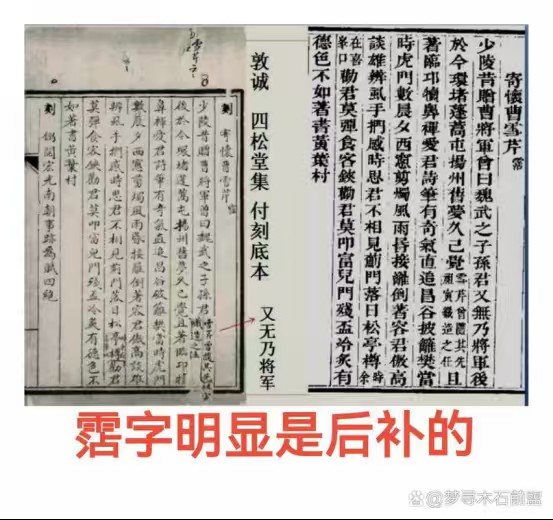 寄懷曹雪芹 霑
少陵昔贈曹將軍曾曰魏武之子孫君又無乃將軍後
於今環堵蓬蒿屯揚州舊夢久已覺雪芹曾隨其先祖寅織造之任且
著臨邛犢鼻褌愛君詩筆有奇氣直追昌谷披籬樊當
時虎門數晨夕西窗剪燭風雨昏接䍦倒著容君傲高
談雄辨虱手捫感時思君不相見薊門落日松亭樽時余
在喜峯口勸君莫彈食客鋏勸君莫叩富兒門殘盃冷炙有
德色不如著書黃葉村
敦诚 四松堂集 付刻底本
又无乃将军
刻 寄懷曹雪芹 霑
少陵昔贈曹將軍曾曰魏武之子孫君又無乃將軍
後於今環堵蓬蒿屯揚州舊夢久已覺且著臨邛犢
鼻褌愛君詩筆有奇氣直追昌谷破籬樊當時虎門
數晨夕西窗剪燭風雨昏接䍦倒著容君傲高談雄
辨虱手捫感時思君不相見薊門落日松亭樽勸君
莫彈食客鋏勸君莫叩富兒門殘盃冷炙有德色不
如著書黃葉村
刻 閱宏光南朝事跡為賦四絕
霑字明显是后补的